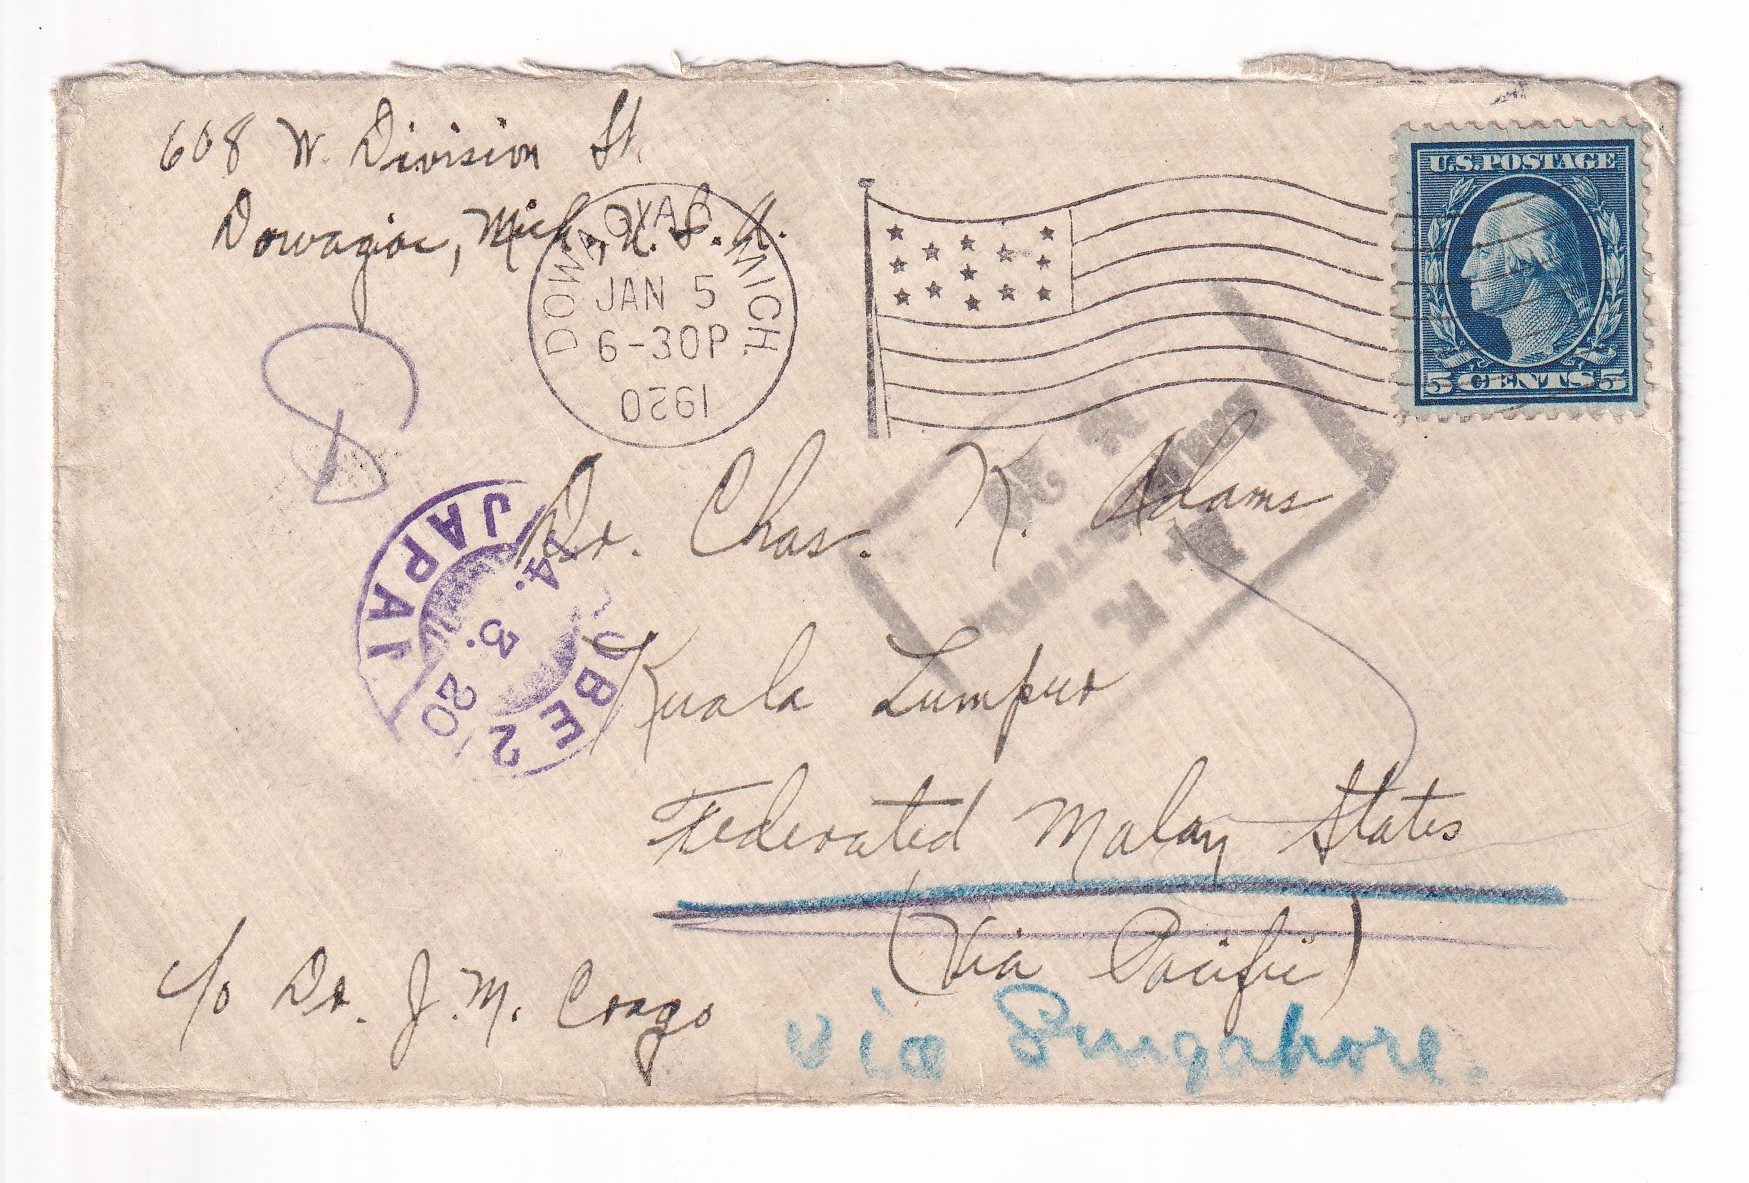 608 W. Division St.
Dowagiac, Mich., U.S.A.
DOWAGIAC MICH.
JAN 5
6-30P
1920
U.S. POSTAGE
5 CENTS 5
8
JAPAN
14. 3. 20
OBE 2
Dr. Chas. K. Adams
Kuala Lumpur
Federated Malay States
(Via Pacific)
c/o Dr. J. M. Crago
via Singapore.